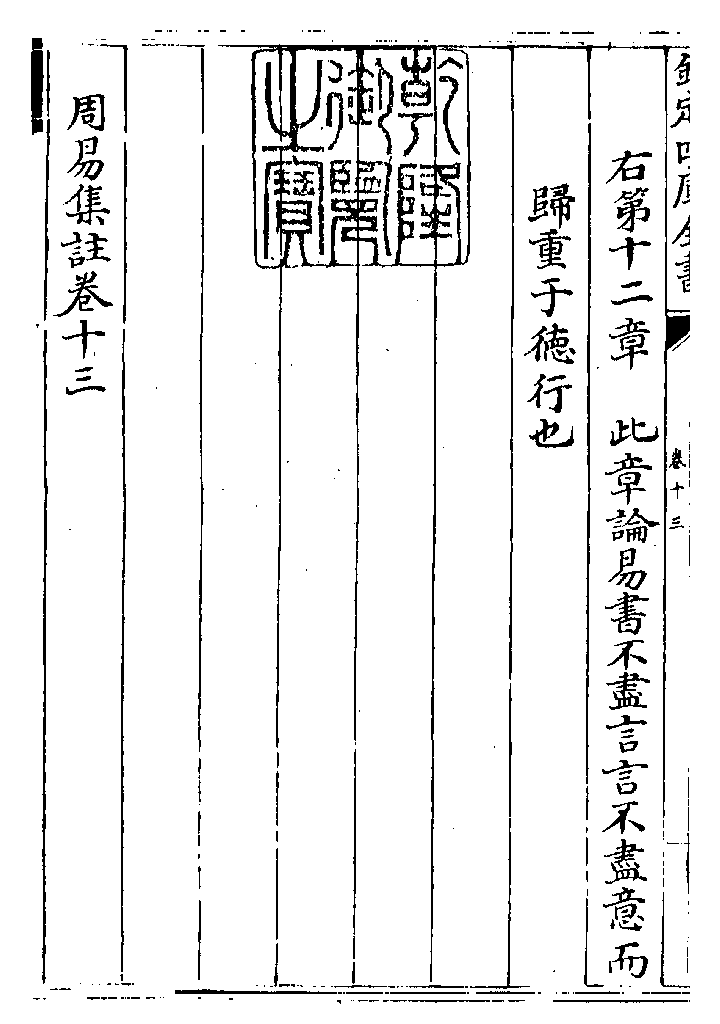 欽定四庫全書
卷十三
右第十二章　此章論易書不盡言言不盡意而
歸重于德行也
乾隆
御覽
之寶
周易集註卷十三